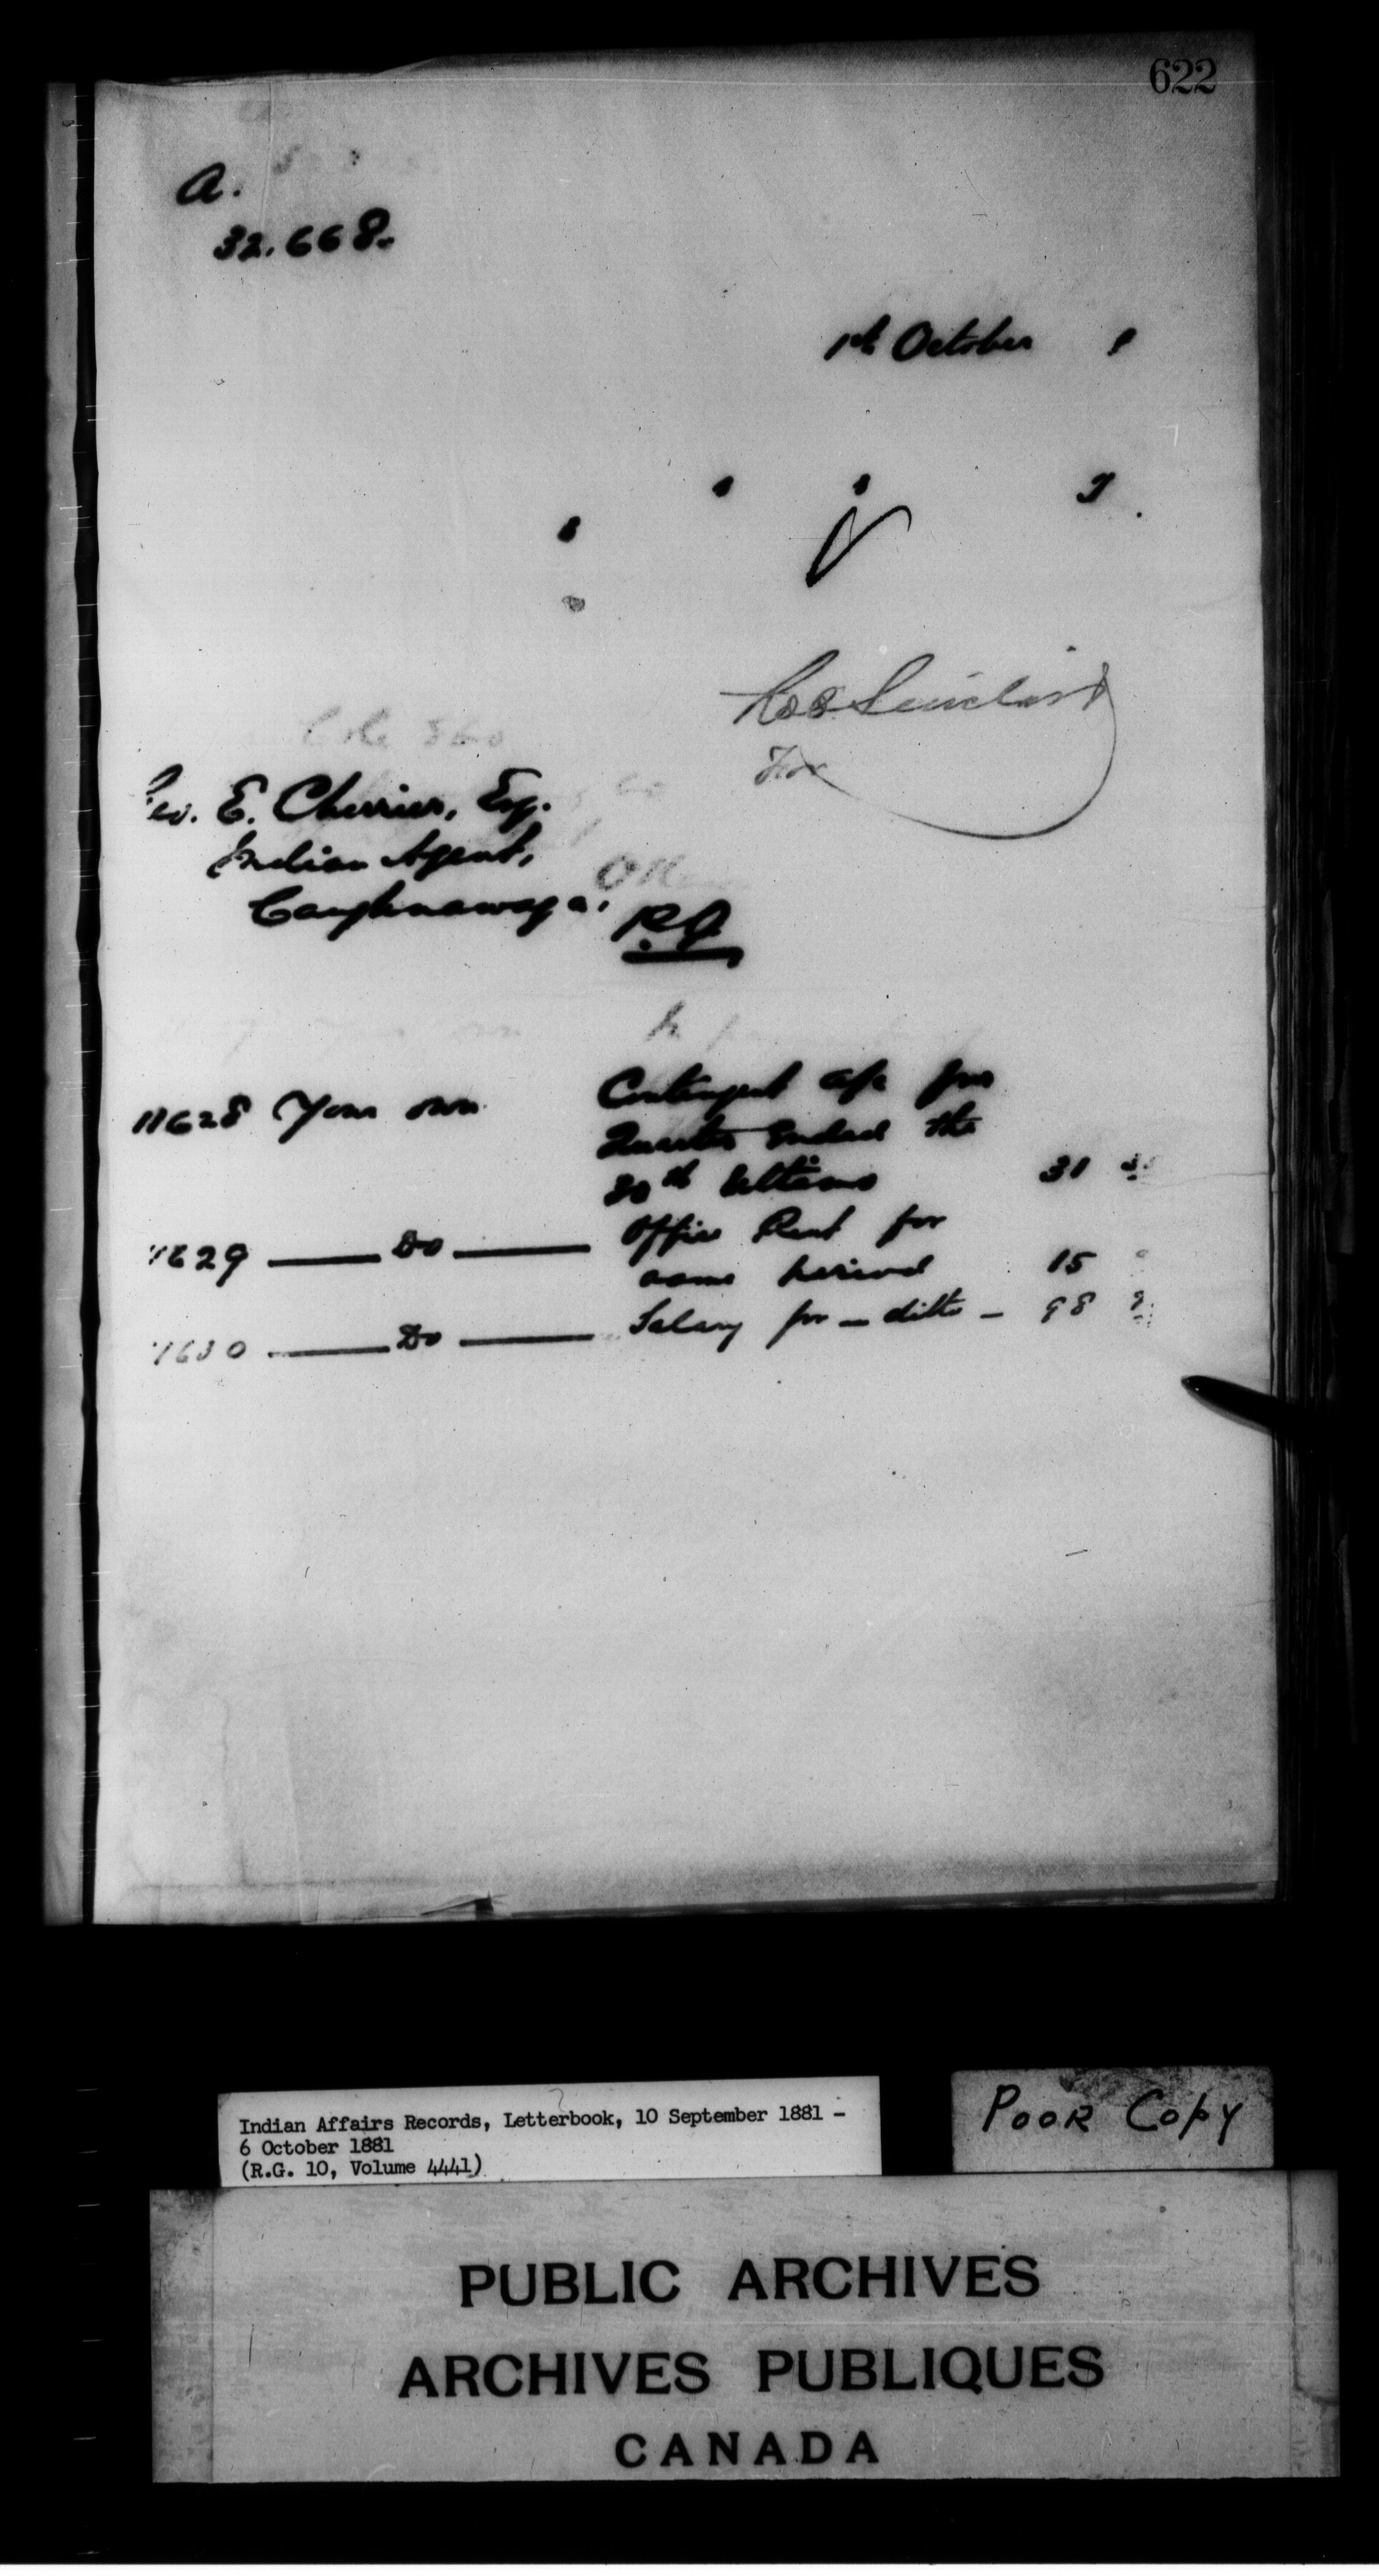 622
A.
32.668.
1st October 1
Geo. E. Cherrier, Esq.
Indian Agent,
Caughnawaga,
P.Q.
11628 Your own Contingent a/c for
Quarter Ended the
30th Ultimo 31
11629 — Do — Office Rent for
same period 15
11630 — Do — Salary for — ditto — 98
Indian Affairs Records, Letterbook, 10 September 1881 -
6 October 1881
(R.G. 10, Volume 4441)
POOR COPY
PUBLIC ARCHIVES
ARCHIVES PUBLIQUES
CANADA